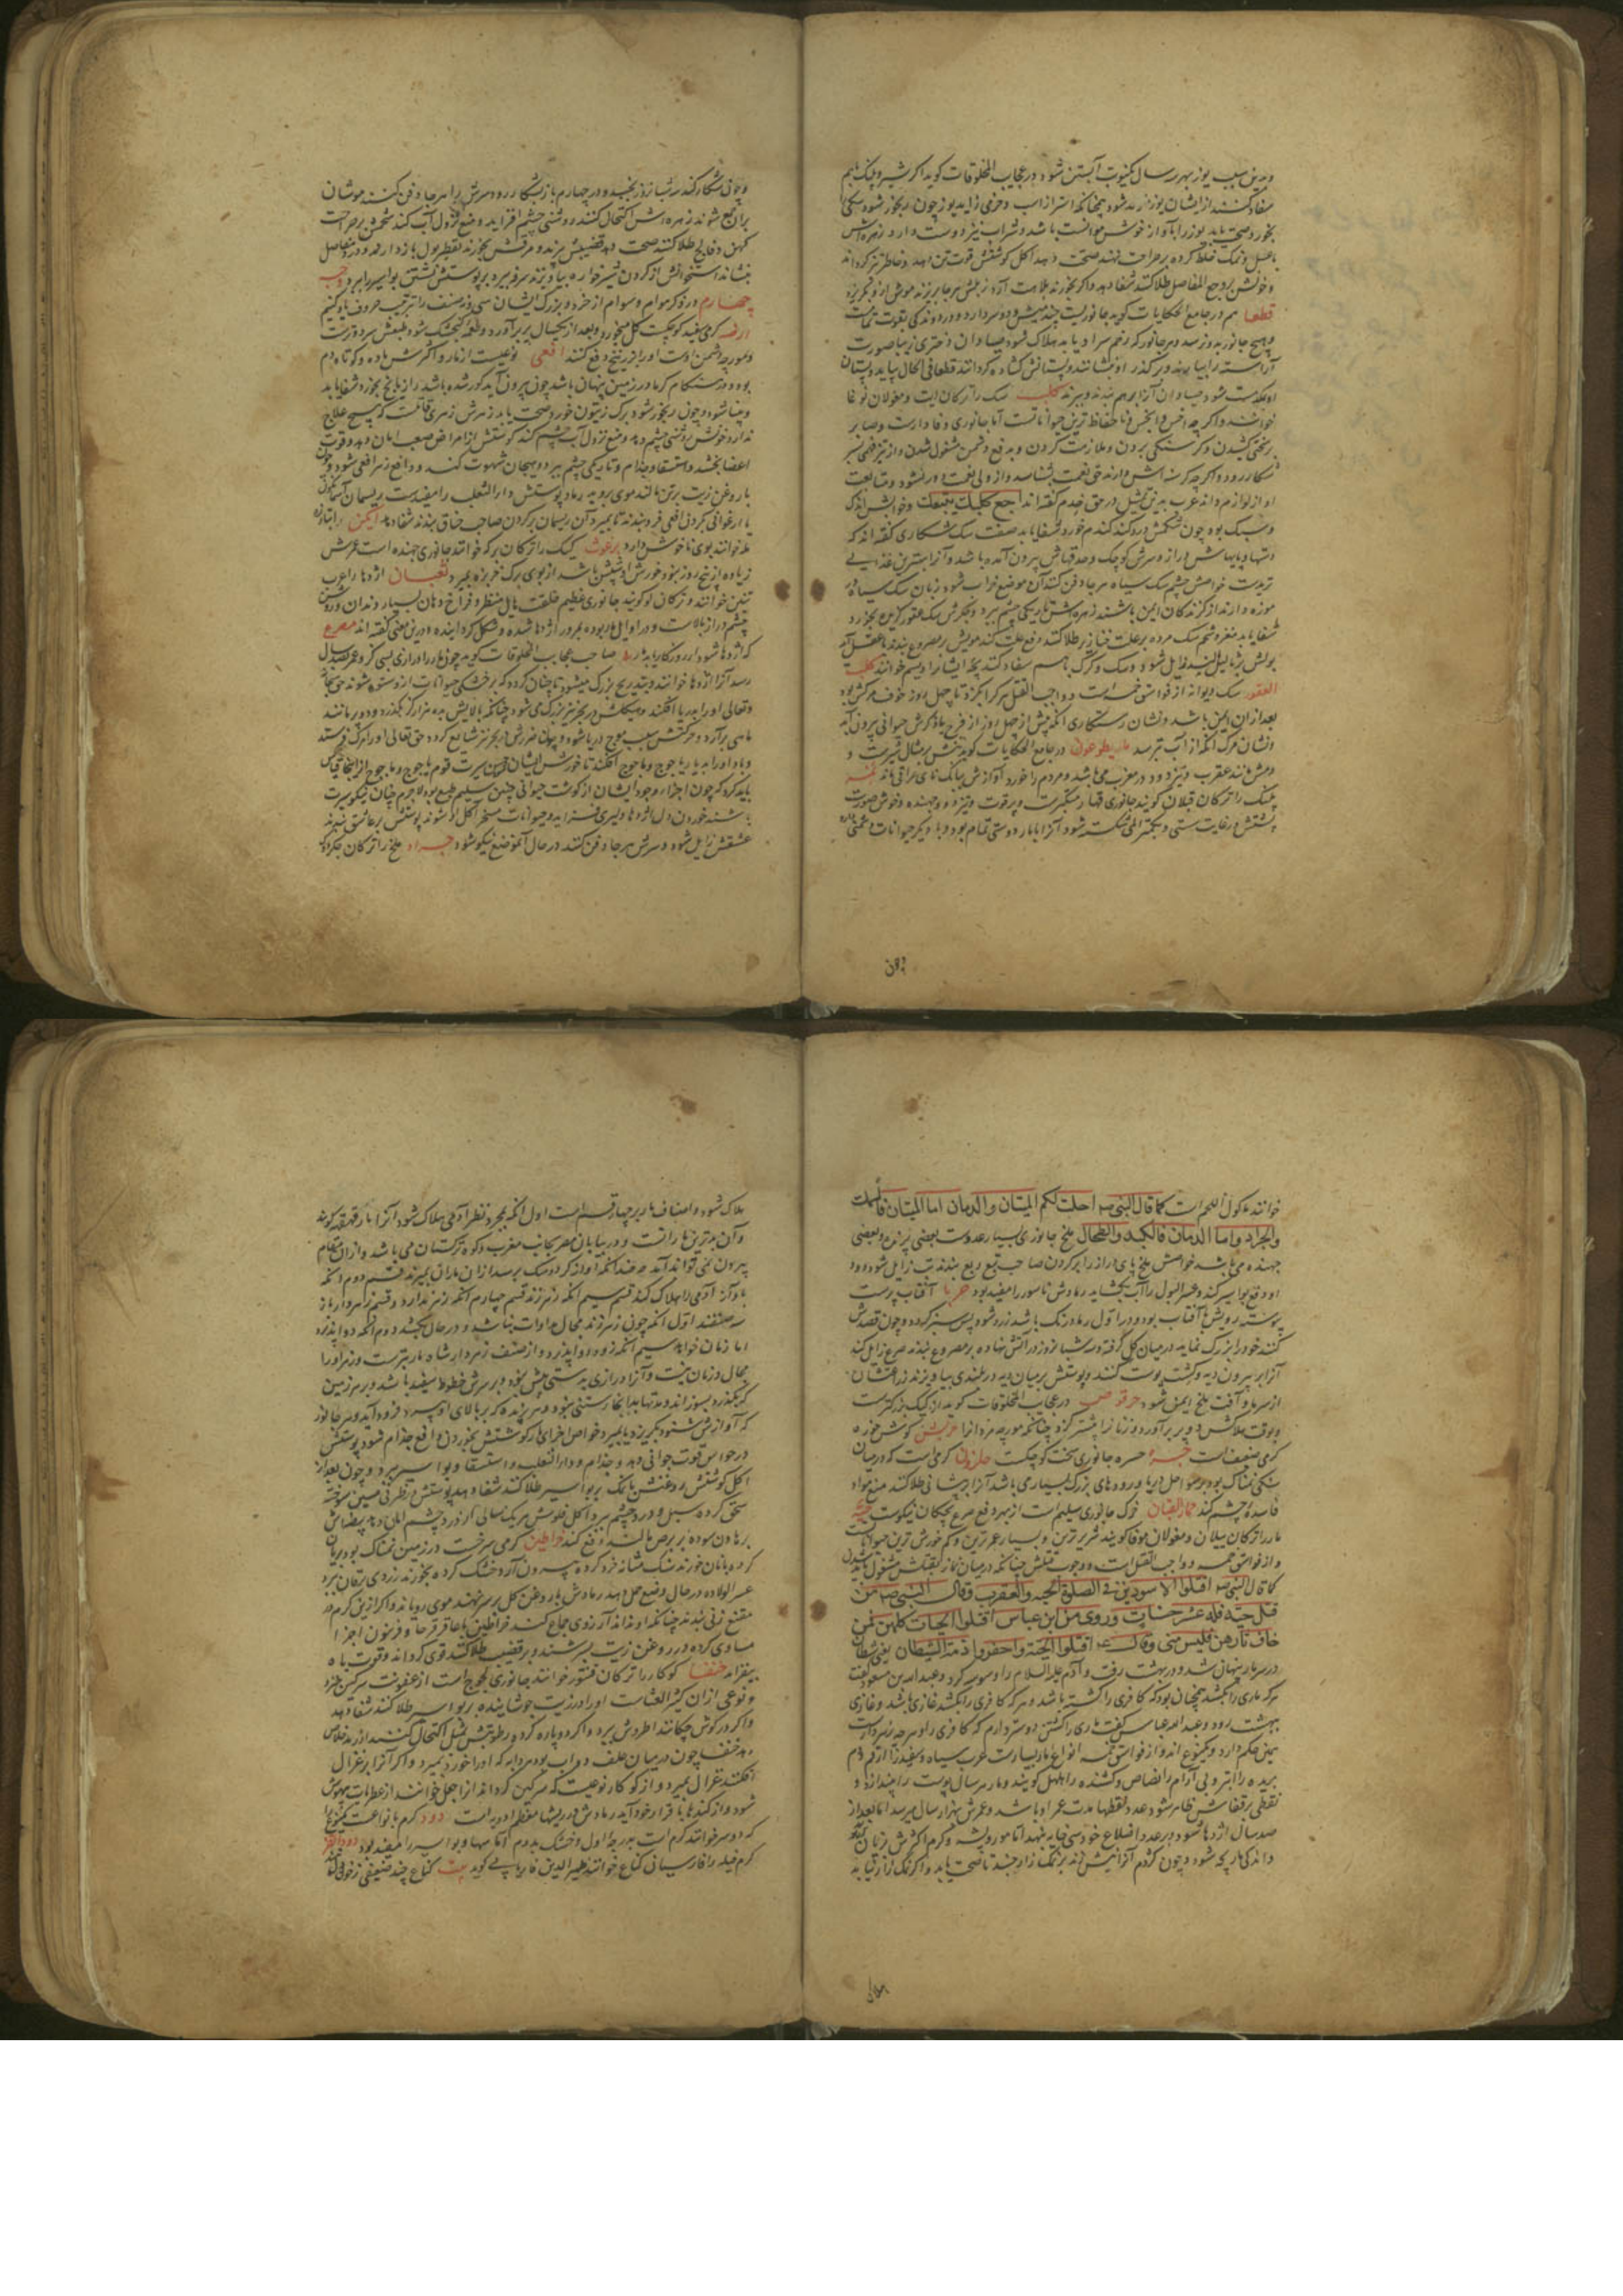 وبدین سبب یوز بهر سال یکنوبت آبستن شود و در عجایب المخلوقات کوید اکر شیر و پلنک بهم
سفاد کنند از ایشان یوز زاید شود همچنانکه استر از اسب و خر می زاید یوز چون رنجور شود سکی
بخورد صحت یابد یوز را با آواز خوش موانست باشد و شراب نیز دوست دارد زهره اش
با عسل و نمک خلط کرده بر جراحت نهند صحت دهد اکل کوشتش قوت تن دهد و خاطر تیز کرداند
و خونش بر وجع المفاصل طلا کنند شفا دهد و اکر بخورند بلاهت آرد زبلش هر جا بریزند موش از و بگریزد
قطعا هم در جامع الحکایات کوید جانوریست چند میش و دو سر دارد و در دوندکی بقوت تمامست
و هیچ جانور بدو نرسد و هر جانور که زخم سر او یابد هلاک شود صیادان دختری زیبا صورت
آراسته را بیارند و بر کذر او بنشانند و پستانش کشاده کردانند قطعا فی الحال بیاید و پستان
او مکد مست شود صیادان آنرا برهم بندند و ببرند کلب سک را ترکان ایت و مغولان نوغا
خوانند و اکرچه اخس و انجس و نا حفاظ ترین حیواناتست اما جانوری وفادارست و صابر
بر سختی کشیدن و کرسنکی بردن و ملازمت کردن و بدفع دشمن مشغول شدن و از تیزفهمی بسر
شکار رود و اکرچه کرسنه اش دارند حق نعمت بشناسد و از ولی نعمت دور نشود و متابعت
او از لوازم داند عرب بدین تمثیل در حق خدم کفته اند اجع کلبک یتبعک و خوابش اندک
و سبک بود چون شکمش درد کند کندم خورد شفا یابد صفت سک شکاری کفته اند که
دستها و پایهاش دراز و سرش کوچک و حدقهاش بیرون آمده باشد و آنرا بهترین غذایی
تریدست خواصش چشم سک سیاه هر جا دفن کنند آن موضع خراب شود زبان سک سیاه در
موزه دارند از کزند سکان ایمن باشند زهره اش تاریکی چشم ببرد و جکرش سک عقور کزیده بخورد
شفا یابد مغز و شحم سک مرده بر علت خنازیر طلا کنند دفع علت کند مویش بر مصروع بندند با عقل آید
بولش بر ثالیل مالند زایل شود و سک و کرک باهم سفاد کنند بچه ایشان را دیسم خوانند کلب
العقور سک دیوانه از فواسق خمسه است و واجب القتل هر کرا بکزد تا چهل روز خوف مرکش بود
بعد از آن ایمن باشد و نشان رستکاری آنکه پیش از چهل روز از فرج یا ذکرش حیوانی بیرون آید
و نشان مرک آنکه از آب بترسد مانیطوعون در جامع الحکایات کوید تنش بر مثال شیرست و
دمش مانند عقرب و تیز دود در مغرب می باشد و مردم را خورد آوازش ببانک نای عراقی ماند نمر
پلنک را ترکان قپلان کویند جانوری قهار متکبرست و پر قوت و تیز دو و جهنده و خوش صورت
پشتش در غایت سستی و بکمتر المی شکسته شود آنرا با مار دوستی تمام بود و با دیکر حیوانات دشمنی دارد
وچون
و چون شکار کند سه شبانروز بخسبد و در چهارم باز بشکار رود سرش را هر جا دفن کنند موشان
بران جمع شوند زهره اش اکتحال کنند روشنی چشم افزاید و منع نزول آب کند شحمش بر جراحت
کهن و فالج طلا کنند صحت دهد قضیبش بپزند و مرقش بخورند تقطیر بول باز دارد و درد مفاصل
بنشاند استخوانش از کردن شیرخواره بیاویزند سرفه ببرد بر پوستش نشستن بواسیر را ببرد وجه
چهارم در ذکر هوام و سوام از خرد و بزرک ایشان سی و نه صنف را بترتیب حروف یاد کنیم
ارضه کرمی سفید کوچکست کل میخورد و بعد از یکسال پر برآورد و لقمه کنجشک شود طبعش سرد و ترست
و مورچه دشمن اوست او را بزرنیخ دفع کنند افعی نوعیست از مار و اکثر سش ماده و کوتاه دم
بود و در هنکام کرما در زمین پنهان باشد چون بیرون آید کور شده باشد رازیانج بخورد شفا یابد
و بینا شود و چون رنجور شود برک زیتون خورد صحت یابد زهرش زهری قاتلست که هیچ علاج
ندارد خونش روشنی چشم دهد و منع نزول آب چشم کند کوشتش از امراض صعب امان دهد و قوت
اعضا بخشد و استسقا و جذام و تاریکی چشم ببرد و هیجان شهوت کند و دافع زهر افعی شود و چون
با روغن زیت بر تن مالند موی بروید رماد پوستش داءالثعلب را مفیدست ریسمان آسمانکون
یا ارغوانی بکردن افعی فرو بندند تا بمیرد آن ریسمان بر کردن صاحب خناق بندند شفا دهد ایکن
خوانند بوی ناخوش دارد برغوث کیک را ترکان برکه خوانند جانوری جهنده است عمرش
زیاده از پنج روز نبود خورش او شپش باشد از بوی برک خرزهره بمیرد ثعبان اژدها را عرب
تنین خوانند و ترکان لو کویند جانوری عظیم خلقت هایل منظر و فراخ دهان بسیار دندان روشن
چشم دراز بالاست و در اوایل مار بوده بمرور اژدها شده و شکل کردانیده و درین معنی کفته اند مصرع
که اژدها شود ار روزکار یابد مار صاحب عجایب المخلوقات کوید چون مار را درازی بسی کز و عمر بصد سال
رسد آنرا اژدها خوانند و بتدریج بزرک میشود تا چنان کردد که بر خشکی حیوانات ازو ستوه شوند حق سبحانه
و تعالی او را بدریا افکند و هیکلش در بحر نیز بزرک می شود چنانکه بالایش بده هزار کز بکذرد و دو پر مانند
ماهی برآرد و حرکتش سبب موج دریا شود و چون ضررش در بحر نیز شایع کردد حق تعالی او را مرک فرستد
و باد او را بدیار یاجوج و ماجوج افکند تا خورش ایشان قوم یاجوج و ماجوج از اینجا قیاس
باید کرد که چون اجزاء وجود ایشان از کوشت حیوانی چنین سلیم طبع بود لاجرم چنان نیکو سیرت
باشند خوردن دل اژدها دلیری فزاید و حیوانات مسخر آکل او شوند پوستش بر عاشق بندند
عشقش زایل شود و سرش هر جا دفن کنند در حال آنموضع نیکو شود جراد ملخ را ترکان چکرتکه
خوانند ماکول اللحم است کما قال النبی ص احلت لکم المیتان و الدمان اما المیتان فالسمک
والجراد و اما الدمان فالکبد و الطحال ملخ جانوری بسیار عددست بعضی پرنده و بعضی
جهنده می باشد خواصش ملخ پای دراز را بر کردن صاحب تب ربع بندند تب زایل شود و دود
او دفع بواسیر کند و عسر البول را آب بکشاید رمادش ناسور را مفید بود حربا آفتاب پرست
پیوسته رویش با آفتاب بود و در اول رماد رنک باشد زرد شود پس سبز کردد و چون قصدش
کنند خود را بزرک نماید در میان کل کرفته در سه شبانروز در آتش نهاده بر مصروع بندند صرع زایل کند
آنرا بر بیرون دیه و کشت پوست کنند و پوستش بر میان دیه در بلندی بیاویزند زراعتشان
از سرما و آفت ملخ ایمن شود حرقوص در عجایب المخلوقات کوید از کیک بزرکترست
و بوقت هلاکش دو پر برآورد و زنانرا بیشتر کزد چنانکه مورچه مردانرا حریش کوش خزه
کرمی ضعیف است خسره حسره جانوری سخت کوچکست حلزون کرمی است که در میان
سنکی نمناک بود بر سواحل دریا و رودهای بزرک بسیار می باشد آنرا بر پیشانی طلا کنند منع مواد
فاسده چشم کند حمار قبان خرک جانوری سلیم است از بهر دفع صرع بچکان نیکوست حیه
مار را ترکان ییلان و مغولان موقا کویند شریرترین و بسیار عمرترین و کم خورش ترین حیواناتست
و از فواسق خمسه و واجب القتل است و وجوب قتلش چنانکه در میان نماز بقتلش مشغول باید شدن
کما قال النبی ص اقتلوا الاسودین فی الصلوة الحیه و العقرب و قال النبی ص من
قتل حیة فله عشر حسنات و روی عن ابن عباس اقتلوا الحیات کلهن فمن
خاف ثارهن فلیس منی و قال عم اقتلوا الحیة و احقروا ذمة الشیطان یعنی شیطان
در سر مار پنهان شد و در بهشت رفت و آدم علیه السلام را وسوسه کرد و عبدالله بن مسعود کفت
هر که ماری را بکشد همچنان بود که کافری را کشته باشد و هر که کافری را بکشد غازی باشد و غازی
ببهشت رود و عبدالله عباس کفت ماری را کشتن دوستر دارم که کافری را و هر چه زهر دارست
همین حکم دارد و مجموع اند و از فواسق خمسه انواع مار بسیارست عرب سیاه و سفید را ارقم و دم
بریده را ابتر و بی آرام را نضاض و کشنده را هلهل کویند و مار هر سال پوست را بیندازد و
نقطی بر قفاش ظاهر شود عدد نقطها مدت عمر او باشد و عمرش بهزار سال میرسد اما بعد از
صد سال اژدها شود و بر عدد اضلاع خود سی خایه بنهد اما مور و پشه و کرم اکثرش بزیان آورند
و اندکی مار بچه شود و چون کژدم آنرا نیش زند بر نمک زار جنبد تا صحت یابد و اکر نمک زار نیابد
هلاک
هلاک شود و اصناف مار بر چهار قسم است اول آنکه بمجرد نظر آدمی هلاک شود آنرا مار قهقهه کویند
و آن بدترین مارانست و در بیابان مصر بجانب مغرب و کوه ترکستان می باشد و از آن مقام
بیرون نمی تواند آمد و چندانکه آواز کردد سک برسد از آن ماران بمیرند قسم دوم آنکه
بآواز آدمی را هلاک کند قسم سیم آنکه زهر زند قسم چهارم آنکه زهر ندارد و قسم زهردار باز
سه صنفند اول آنکه چون زهر زند مجال مداوات نباشد و در حال بکشد دوم آنکه دوا پذیرد
اما زمان خواهد سیم آنکه زود دوا پذیرد و از صنف زهردار شاه مار بترست و زهر او را
مجال و زمان نیست و آنرا درازی بدستی بیش نبود و بر سرش خطوط سفید باشد و بر هر زمین
که بکذرد بسوزاند و مدتها بدانجا رستنی نبود و هر پرنده که بر بالای او پرد فرود آید و هر جانور
که آوازش شنود بکریزد یا بمیرد خواص اجزای مار کوشتش بخوردن دافع جذام شود پوستش
در حواس قوت جوانی دهد و جذام و داءالثعلب و استسقا و بواسیر ببرد و چون بعد از
اکل کوشتش روغنش با نمک بر بواسیر طلا کنند شفا دهد پوستش در ظرفی مسین سوخته
سحق کرده سبل و درد چشم ببرد اکل خونش هر یک سالی از درد چشم امان دهد بیضه اش
برهاون سوده بر برص مالند دفع کند خراطین کرمی سرخست در زمین نمناک بود بریان
کرده با نان خورند سنک مثانه خرد کرده بیرون آرد خشک کرده بخورند زردی یرقان ببرد
عسر الولاده در حال وضع حمل دهد رمادش با روغن کل بر سر نهند موی رویاند و اکر ازین کرم در
مقنع زنی بندند چنانکه او نداند آرزوی جماع کند خراطین با عاقرقرحا و فرفیون اجزا
مساوی کرده در روغن زیت بسرشند و بر قضیب طلا کنند قوی کرداند و قوت باه
بیفزاید خنفسا کوکار را ترکان قنقوز خوانند جانوری لجوج است از عفونت سرکین خیزد
و نوعی از آن کثیرالغثاست او را در زیت جوشانیده بر بواسیر طلا کنند شفا دهد
و اکر در کوش چکانند اطروش ببرد و اکر دو پاره کرده رطوبتش بمیل اکتحال کنند از رمد خلاص
دهد خنفسا چون در میان علف دواب بود هر دابه که او را خورد بمیرد و اکر آنرا بر غزال
افکنند غزال بمیرد و از کوکار نوعیست که سرکین کرداند آنرا جعل خوانند از عطریات بیهوش
شود و از کندها با قرار خود آید رمادش در ریشها معظم ادویه است دود کرم بانواعست مجموع را
که دو سر خوانند کرم است بدرجه اول و خشک بدوم آماسها و بواسیر را مفید بود دود القز
کرم فیله را فارسیان کناغ خوانند ظهیر الدین فاریابی کوید بیت کناغ چند ضعیفی ز خون دل